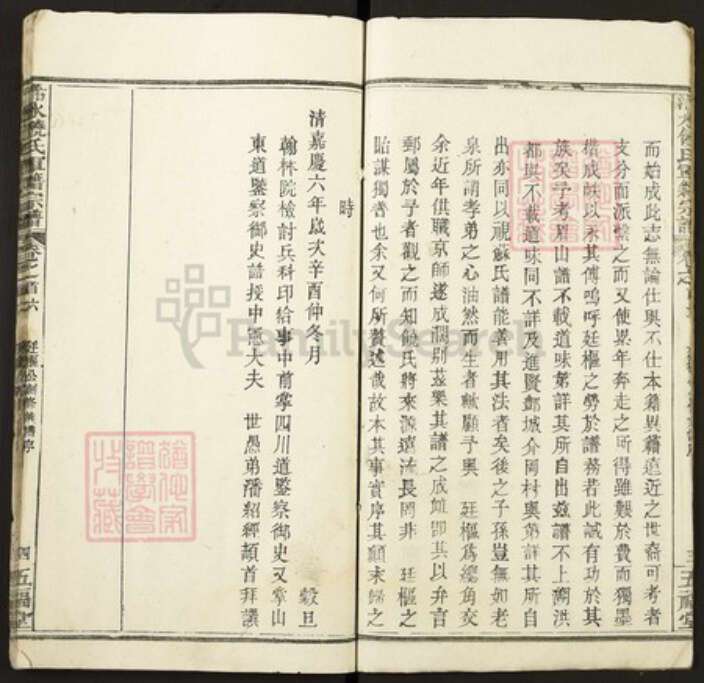 而始成此志無論仕與不仕本籍異籍遠近之世裔可考者
支分而派繫之而又使累年奔走之所得雖艱於費而獨墨
楷成帙以永其傳嗚呼廷樞之勞於譜務若此誠有功於其
族矣予考眉山譜不載道味第詳其所自出茲譜不上溯洪
都與不載道味同不詳及進賢鄷城介岡村與第詳其所自
出亦同以視蘇氏譜能善用其法者矣後之子孫豈無如老
泉所謂孝弟之心油然而生者歟顧予與 廷樞為總角交
余近年供職京師遂成濶別茲樂其譜之成
郵屬於予者觀之而知饒氏將來源遠流長罔非 廷樞之
貽謀獨善也余又何所贅述哉故本其事實序其顛末歸之
時
清嘉慶六年歲次辛酉仲冬月 穀旦
翰林院檢討兵科印給事中前掌四川道鑒察御史又掌山
東道鑒察御史誥授中憲大夫 世愚弟潘紹經頓首拜譔
饒氏宗譜
卷之首六
四
五福堂
FamilySearch